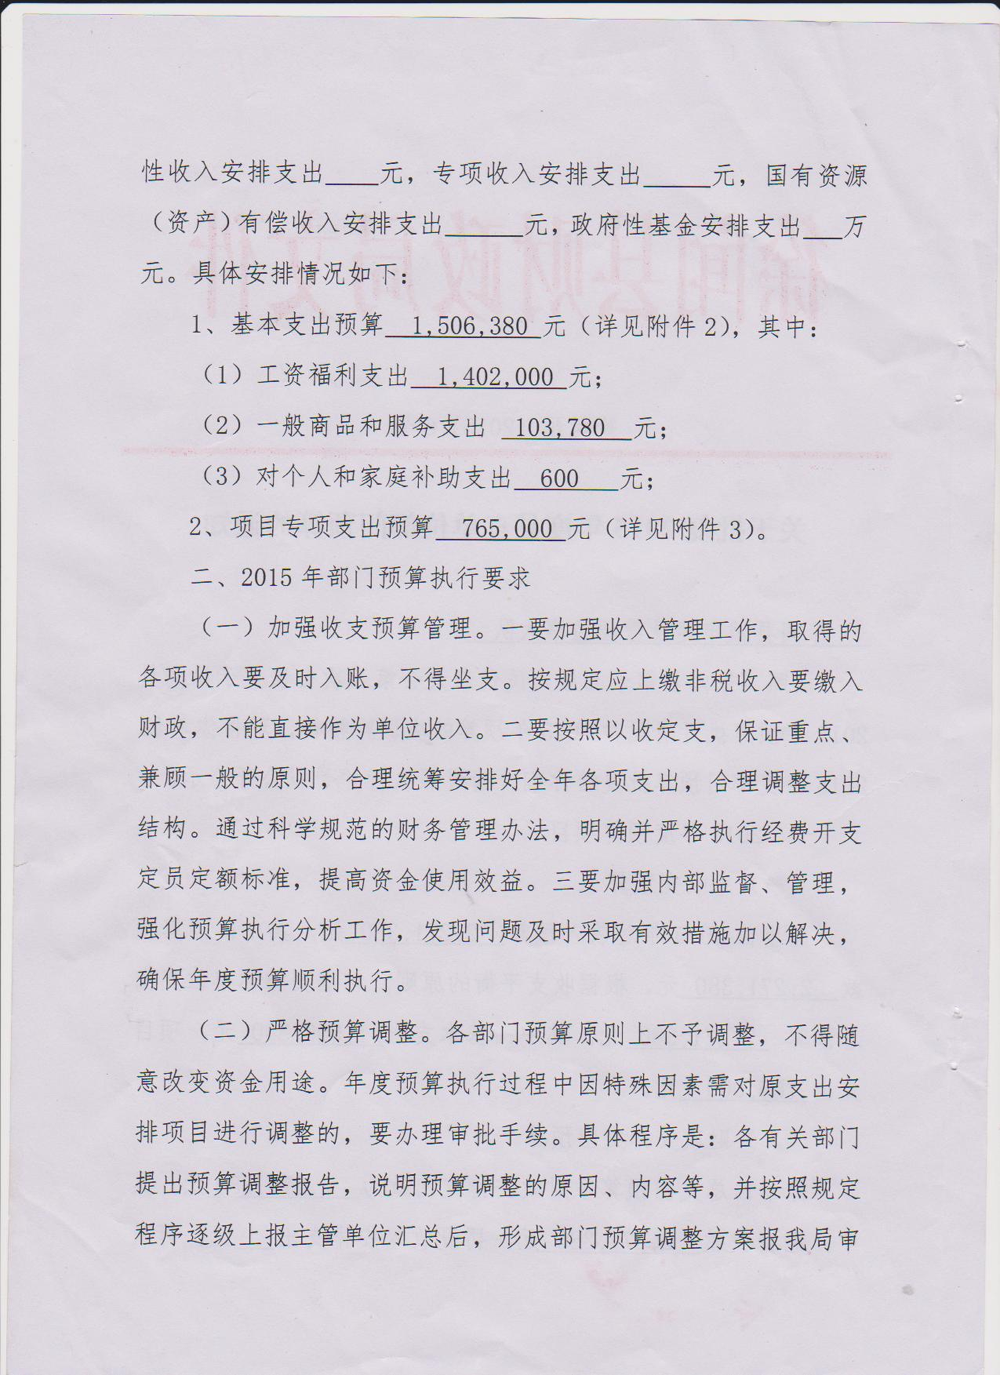 性收入安排支出____元，专项收入安排支出_____元，国有资源
（资产）有偿收入安排支出______元，政府性基金安排支出___万
元。具体安排情况如下：
1、基本支出预算 1,506,380 元（详见附件2），其中：
（1）工资福利支出 1,402,000 元；
（2）一般商品和服务支出 103,780 元；
（3）对个人和家庭补助支出 600 元；
2、项目专项支出预算 765,000 元（详见附件3）。
二、2015年部门预算执行要求
（一）加强收支预算管理。一要加强收入管理工作，取得的
各项收入要及时入账，不得坐支。按规定应上缴非税收入要缴入
财政，不能直接作为单位收入。二要按照以收定支，保证重点、
兼顾一般的原则，合理统筹安排好全年各项支出，合理调整支出
结构。通过科学规范的财务管理办法，明确并严格执行经费开支
定员定额标准，提高资金使用效益。三要加强内部监督、管理，
强化预算执行分析工作，发现问题及时采取有效措施加以解决，
确保年度预算顺利执行。
（二）严格预算调整。各部门预算原则上不予调整，不得随
意改变资金用途。年度预算执行过程中因特殊因素需对原支出安
排项目进行调整的，要办理审批手续。具体程序是：各有关部门
提出预算调整报告，说明预算调整的原因、内容等，并按照规定
程序逐级上报主管单位汇总后，形成部门预算调整方案报我局审